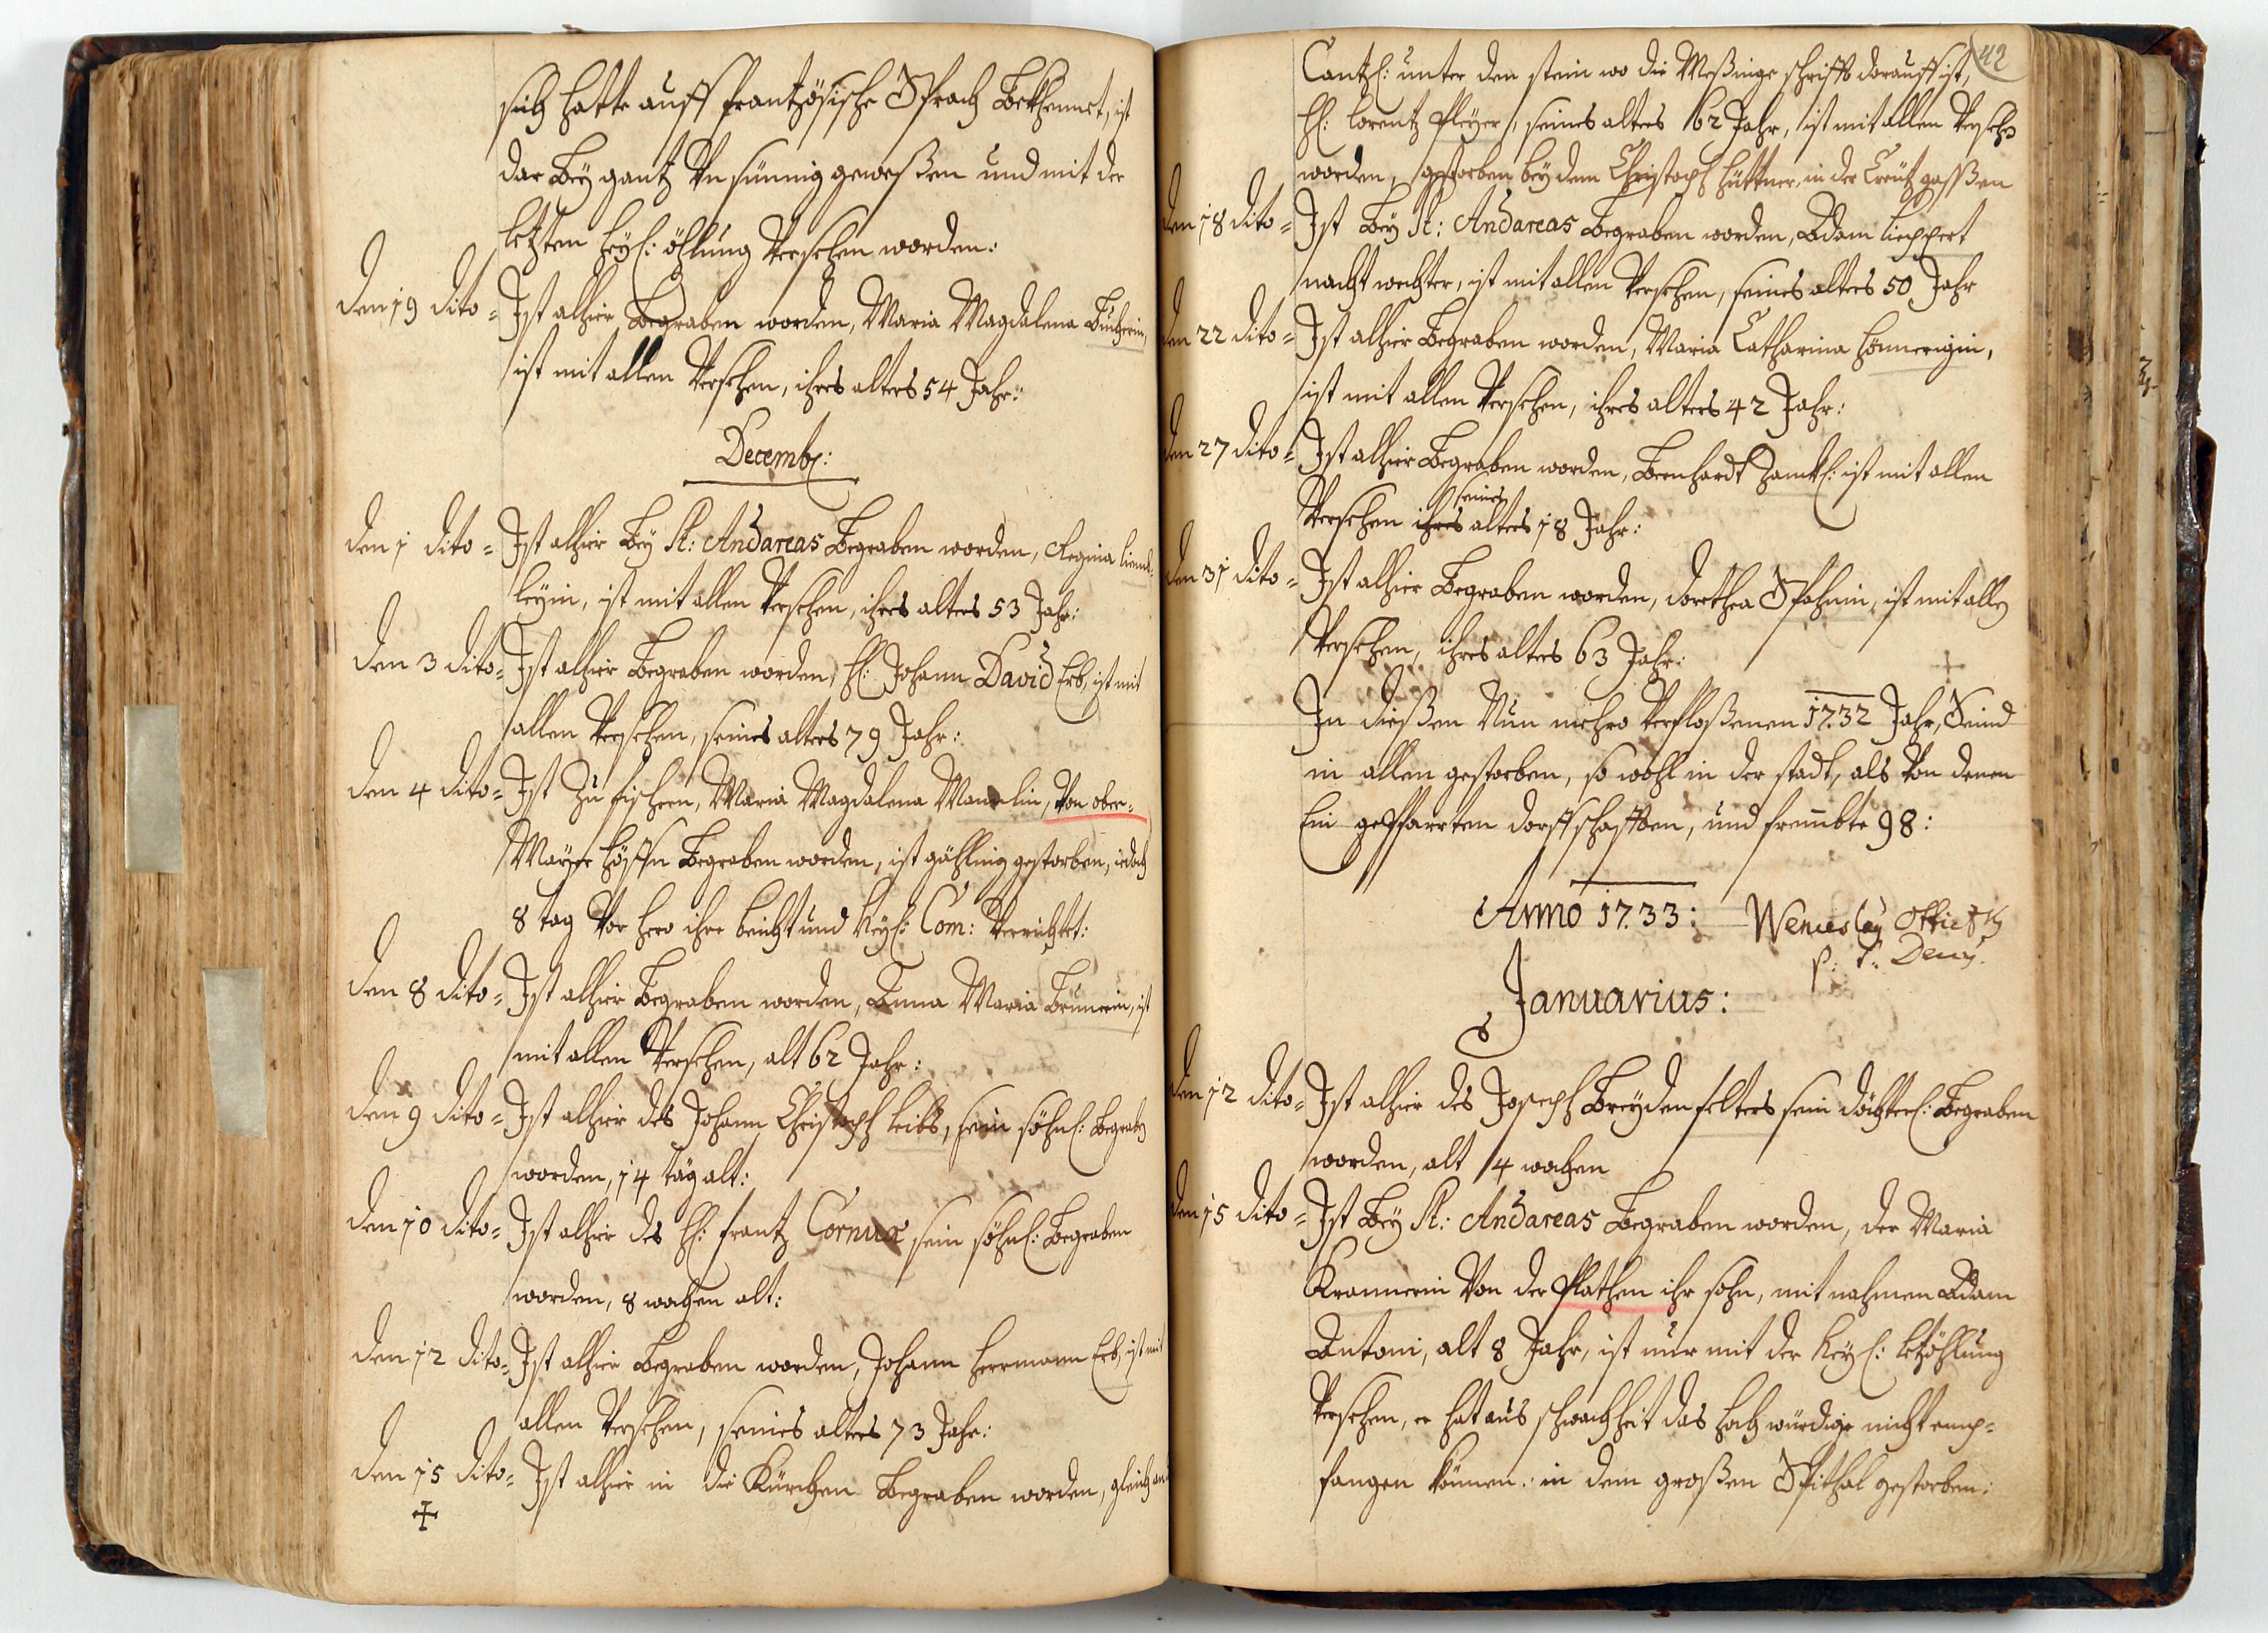 sich hatte auff frantzösische Sprach Bekhennet, ist
dar Bey gantz Vnsinnig geweßen und mit der
letzten heyl: öhlung Versehen worden:
den 19 dito = Ist alhier Begraben worden, Maria Magdalena Bücherin,
ist mit allen Versehen, ihres alters 54 Jahr:
Decembr:
den 1 dito = Ist alhier Bey St: Andareas Begraben worden, Regina
leyin, ist mit allen Versehen, ihres alters 53 Jahr:
den 3 dito = Ist alhier Begraben worden, H: Johann David Erb, ist mit
allen Versehen, seines alters 79 Jahr:
den 4 dito = Ist Zu fischern, Maria Magdalena, Von ober=
Mayer höffen Begraben worden, ist gähling gestorben, iedoch
8 tag Vor hero ihre beicht und Heyl: Com: Verrichtet:
den 8 dito = Ist alhier Begraben worden, Anna Maria Brunerin, ist
mit allen Versehen, alt 62 Jahr:
den 9 dito = Ist alhier des Johann Christoph leibs, sein söhnl: Begraben
worden, 14 täg alt:
den 10 dito = Ist alhier des H: frantz Cornux sein söhnl: Begraben
worden, 8 wochen alt:
den 12 dito = Ist alhier Begraben worden, Johann Herrmann Erb, ist mit
allen Versehen, seines alters 73 Jahr:
den 15 dito = Ist alhier in die Kürchen Begraben worden, gleich an
+
42
Cantzl: unter den stein wo die Meßinge schrifft darauff ist,
H: Lorentz Pleyer, seines alters 62 Jahr, ist mit allen Versehen
worden, gestorben bey dem Christoph Hüttner, in der Creütz gaßßen
den 18 dito = Ist Bey St: Andareas Begraben worden, Adam lieppert
nacht wechter, ist mit allen Versehen, seines alters 50 Jahr
den 22 dito = Ist alhier Begraben worden, Maria Catharina Hönnerigin,
ist mit allen Versehen, ihres alters 42 Jahr:
den 27 dito = Ist alhier Begraben worden, Bernhardt Zamkl: ist mit allen
Versehen ihres seines alters 18 Jahr:
den 31 dito = Ist alhier Begraben worden, dorethea Spahnin, ist mit allen
Versehen, ihres alters 63 Jahr:
+
In dießen Nun mehro Verfloßenen 1732 Jahr, Seind
in allen gestorben, so wohl in der stadt, als Von denen
Ein gepfarrten dorffschafften, und frembte 98:
Anno 1733: Wenceslaÿ
p: t: Decanꝰ.
Januarius:
den 12 dito = Ist alhier des Joseph Breydenfelters sein döchterl: Begraben
worden, alt 14 wochen
den 15 dito = Ist Bey St: Andareas Begraben worden, der Maria
Krannerin Von der Plathen ihr sohn, mit nahmen Adam
Antoni, alt 8 Jahr, ist nur mit der Heyl: letzöhlung
Versehen, er hat aus schwachheit das hochwürdige nicht emp=
fangen können: in dem großen Spithal gestorben: